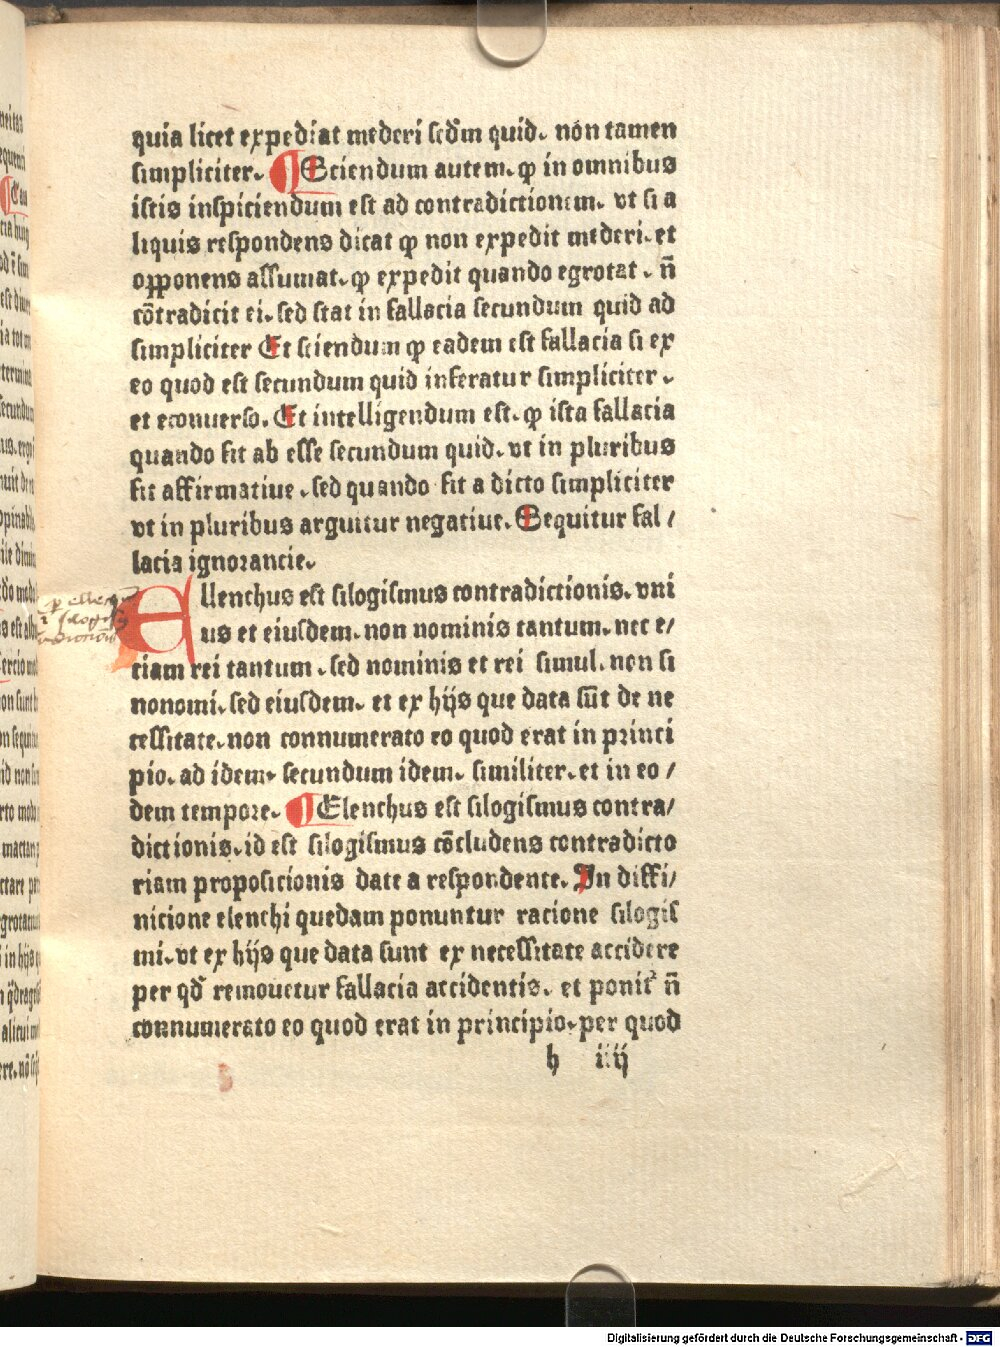 quia licet expediat mederi scdm̄ quid. non tamen
simpliciter. ¶ Sciendum autem. ꝙ in omnibus
istis inspiciendum est ad contradictionem. vt si a
liquis respondens dicat ꝙ non expedit mederi. et
opponens assumat. ꝙ expedit quando egrotat. n̄
cōtradicit ei. sed stat in fallacia secundum quid ad
simpliciter Et sciendum ꝙ eadem est fallacia si ex
eo quod est secundum quid inferatur simpliciter.
et econuerso. Et intelligendum est. ꝙ ista fallacia
quando fit ab esse secundum quid. vt in pluribus
fit affirmatiue. sed quando fit a dicto simpliciter
vt in pluribus arguitur negatiue. Sequitur fal/
lacia ignorancie.
Ellenchus est silogismus contradictionis. vni
us et eiusdem. non nominis tantum. nec e/
ciam rei tantum. sed nominis et rei simul. non si
nonomi. sed eiusdem. et ex hijs que data sūt de ne
cessitate. non connumerato eo quod erat in princi
pio. ad idem. secundum idem. similiter. et in eo/
dem tempore. ¶ Elenchus est silogismus contra/
dictionis. id est silogismus cōcludens contradicto
riam proposicionis date a respondente. In diffi/
nicione elenchi quedam ponuntur racione silogis
mi. vt ex hijs que data sunt ex necessitate accidere
per qd̄ remouetur fallacia accidentis. et ponit᷑ n̄
connumerato eo quod erat in principio. per quod
h iiij
Digitalisierung gefördert durch die Deutsche Forschungsgemeinschaft - DFG